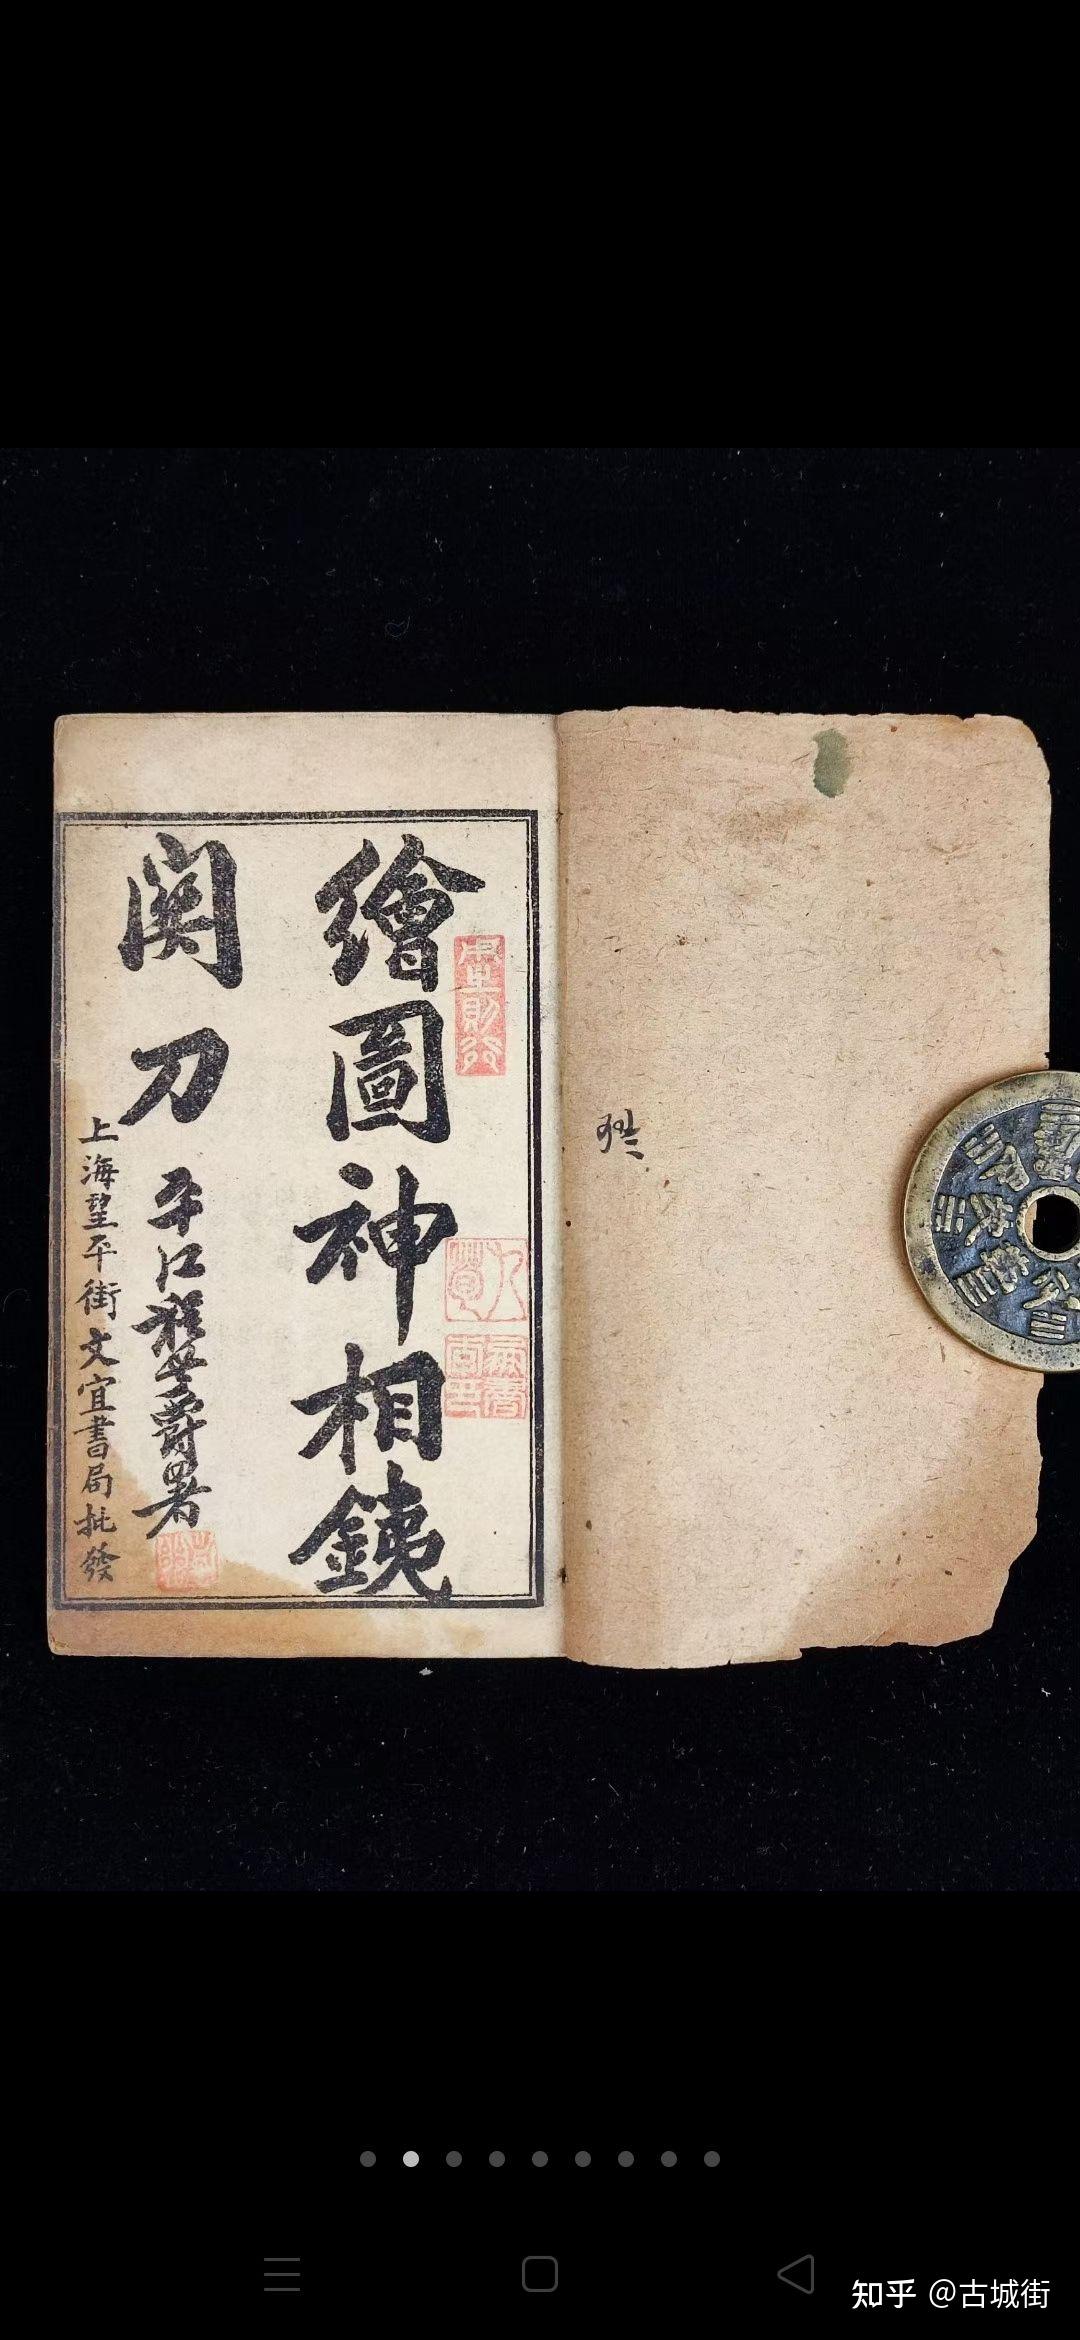 繪圖神相鐵
関刀
平江程芸爵署
上海望平街文宜書局批發
知乎 @古城街